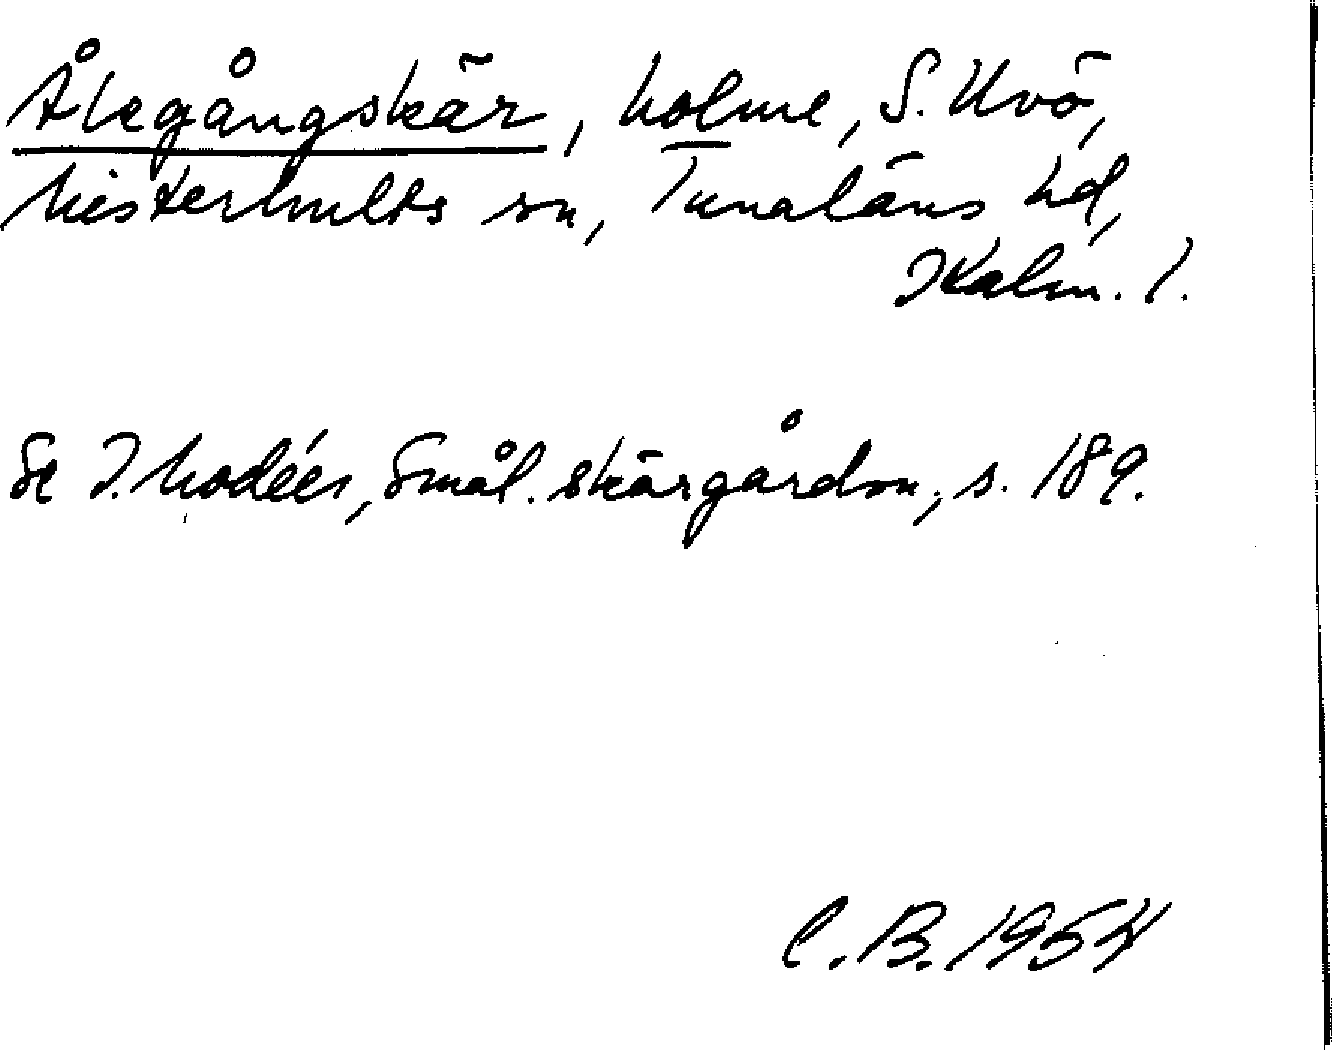 Ålegångskär, holme, S. Uvö,
Misterhults sn, Tunaläns hd,
Kalm. l.
Se I. Modéer, Smål. skärgårdsn., s. 189.
C. B. 1954